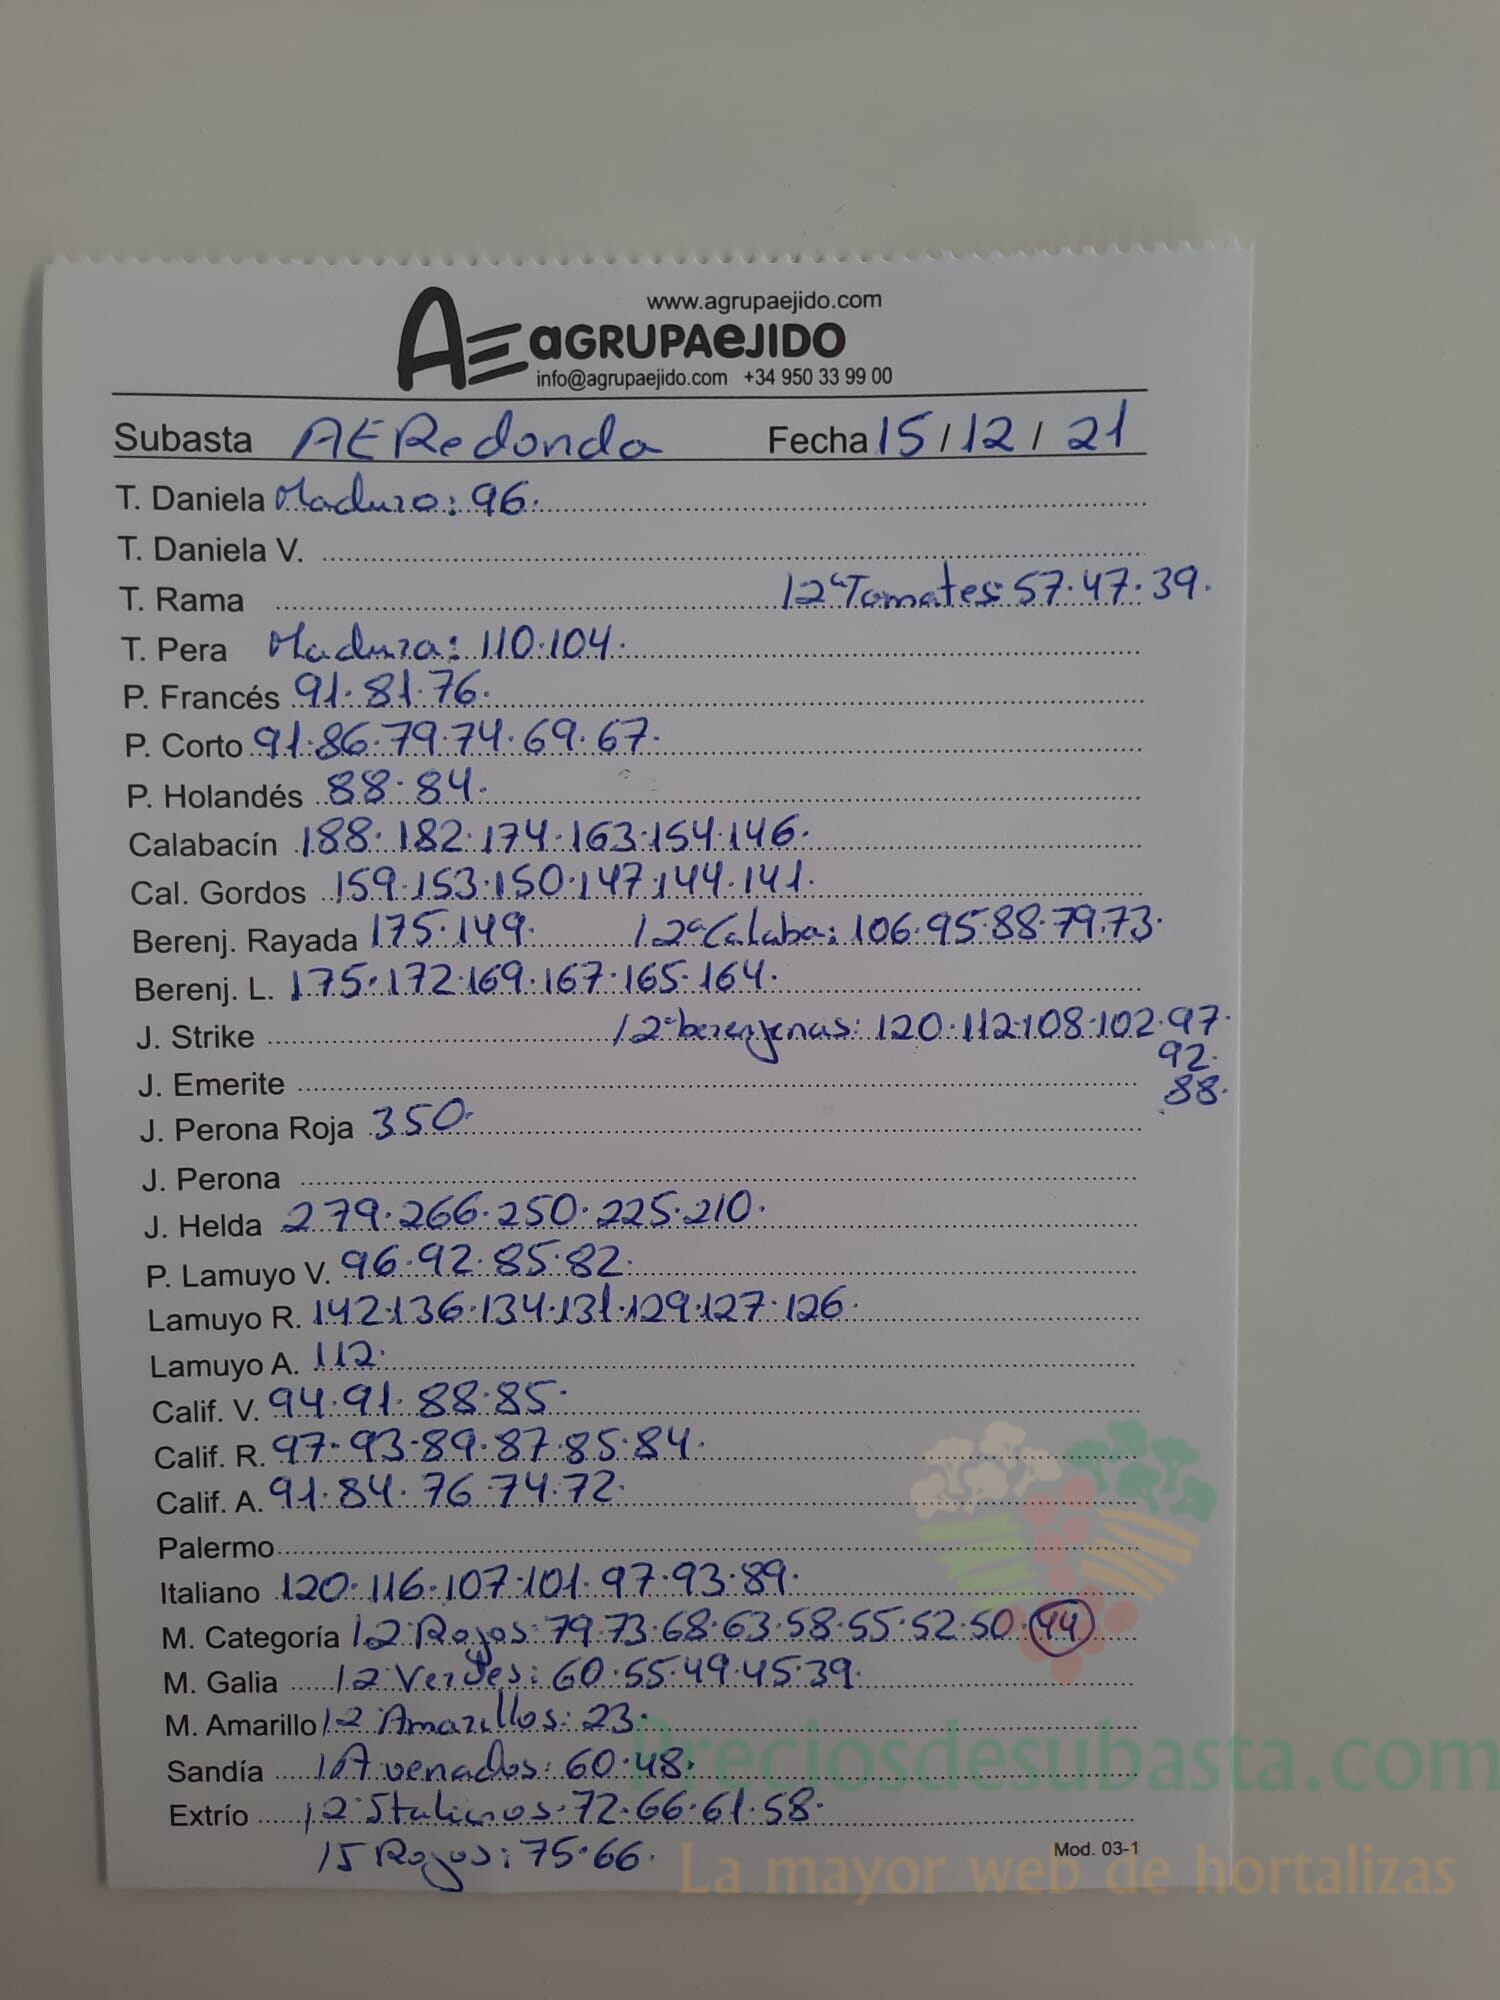 www.agrupaejido.com
AE aGRUPAeJIDO
info@agrupaejido.com +34 950 33 99 00
Subasta AERedonda Fecha 15/12/21
T. Daniela Maduro: 96.
T. Daniela V.
T. Rama /2ª Tomates: 57.47.39.
T. Pera Madura: 110.104.
P. Francés 91.81.76.
P. Corto 91.86.79.74.69.67.
P. Holandés 88.84.
Calabacín 188.182.174.163.154.146.
Cal. Gordos 159.153.150.147.144.141.
Berenj. Rayada 175.149. /2ª Calaba: 106.95.88.79.73.
Berenj. L. 175.172.169.167.165.164.
J. Strike /2ª berenjenas: 120.112.108.102.97.
92.
J. Emerite 88.
J. Perona Roja 350.
J. Perona
J. Helda 279.266.250.225.210.
P. Lamuyo V. 96.92.85.82.
Lamuyo R. 142.136.134.131.129.127.126.
Lamuyo A. 112.
Calif. V. 94.91.88.85.
Calif. R. 97.93.89.87.85.84.
Calif. A. 91.84.76.74.72.
Palermo
Italiano 120.116.107.101.97.93.89.
M. Categoría /2 Rojos: 79.73.68.63.58.55.52.50.44
M. Galia /2 Verdes: 60.55.49.45.39.
M. Amarillo /2 Amarillos: 23.
Sandía /Avenados: 60.48.
Extrío /2 Italianos: 72.66.61.58.
/5 Rojos: 75.66.
Mod. 03-1
Preciosdesubasta.com
La mayor web de hortalizas